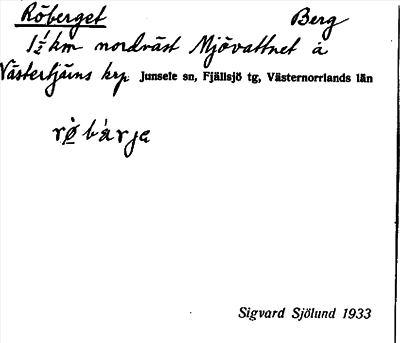 Röberget Berg
1 1/2 km nordväst Mjövattnet å
Västertjärns krp. Junsele sn, Fjällsjö tg, Västernorrlands län
Sigvard Sjölund 1933